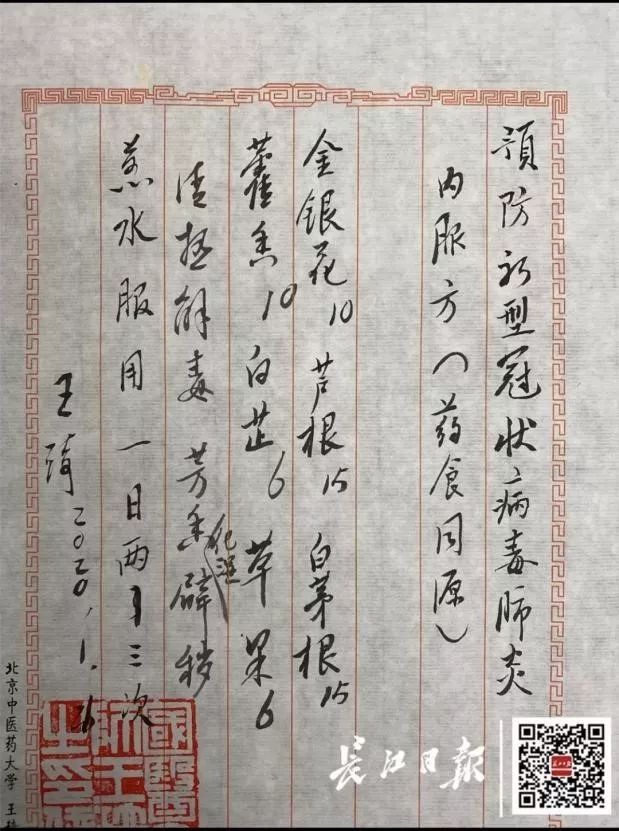 預防新型冠状病毒肺炎
内服方（药食同源）
金银花10 芦根15 白茅根15
藿香10 白芷6 草果6
清熱解毒 芳香辟穢
化湿
煎水服用一日两到三次
王琦 2020.1.
北京中医药大学 王琦
國醫大
长江日报